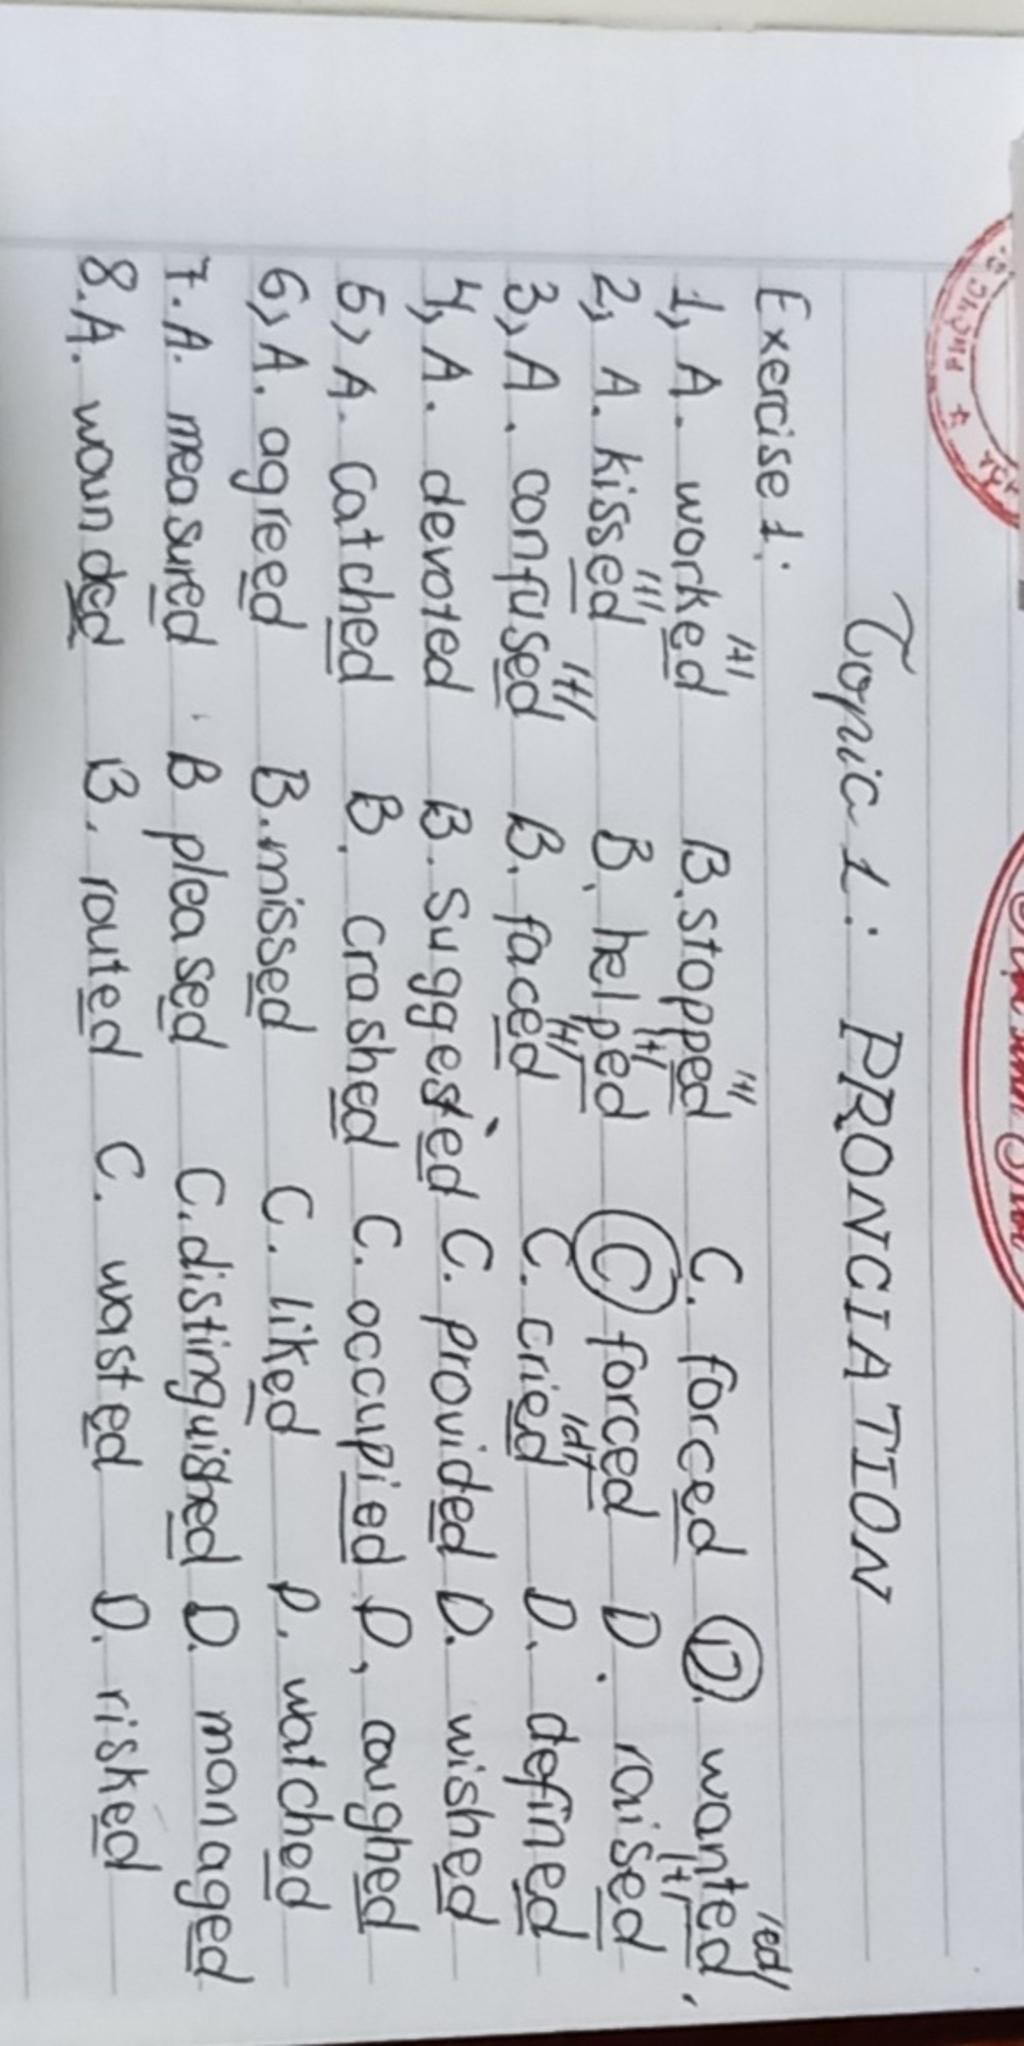 Topic 1: PRONCIATION
Exercise 1:
/t/ /t/ /ed/
1, A. worked B. stopped C. forced D. wanted
/t/ /t/ /t/
2, A. kissed B. helped C forced D. raised
/t/ /t/ /d/
3, A. confused B. faced C. cried D. defined
4, A. devoted B. suggested C. provided D. wished
5, A. catched B. crashed C. occupied D, coughed
6, A. agreed B. missed C. liked D. watched
7. A. measured B pleased C. distinguished D. managed
8. A. wounded B. routed C. wasted D. risked